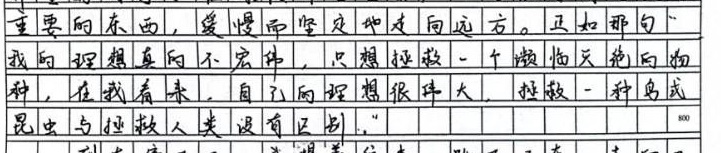 重要的东西，缓慢而坚定地走向远方。正如那句“
我的理想真的不宏伟，只想拯救一个濒临灭绝的物
种，在我看来，自己的理想很伟大，拯救一种鸟或
昆虫与拯救人类没有区别。”
800